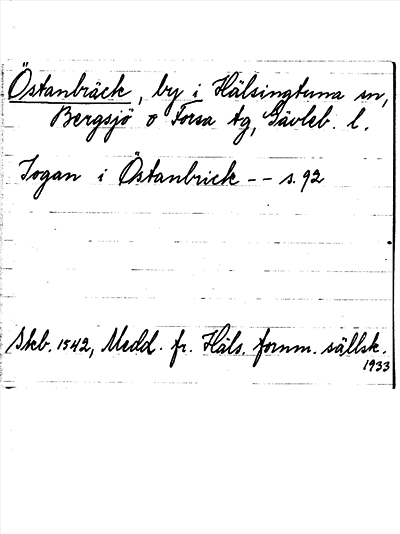 Östanbräck, by i Hälsingtuna sn,
Bergsjö o Forsa tg, Gävleb. l.
Jogan i Östanbrick -- s. 92
Skb. 1542, Medd. fr. Häls. fornm. sällsk.
1933